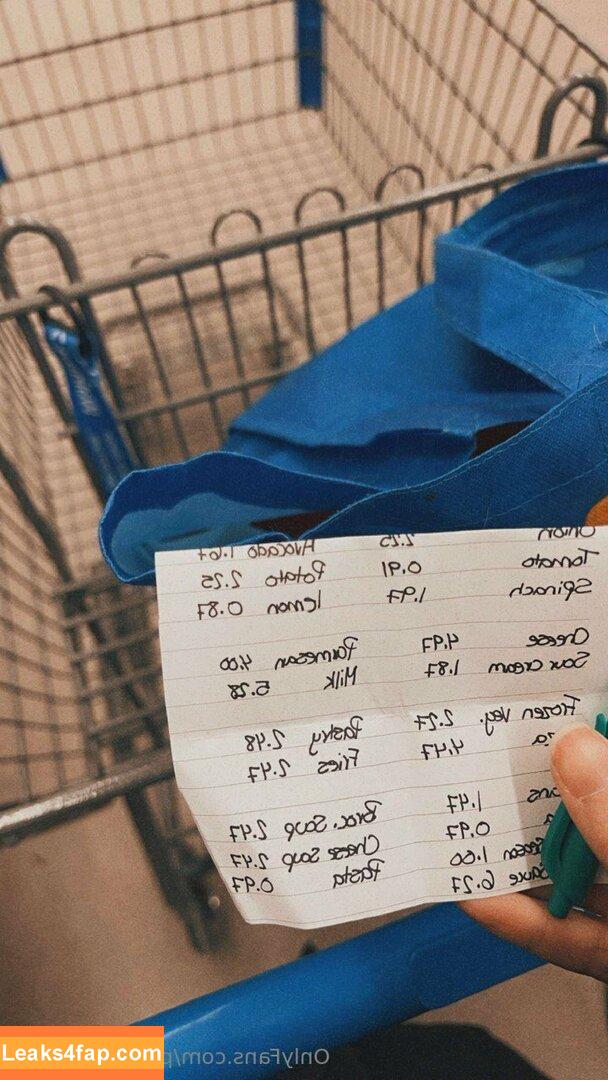 Onion 2.25 Avocado 1.67
Tomato 0.91 Potato 2.25
Spinach 1.97 lemon 0.87
Cheese 4.97 Parmesan 4.00
Sour cream 1.87 Milk 5.28
Frozen veg. 2.27 Pastry 2.48
4.47 Fries 2.47
1.47 Broc. Soup 2.47
0.97 Cheese Soup 2.47
1.00 Pasta 0.97
Sauce 6.27
OnlyFans.com/p
Leaks4fap.com